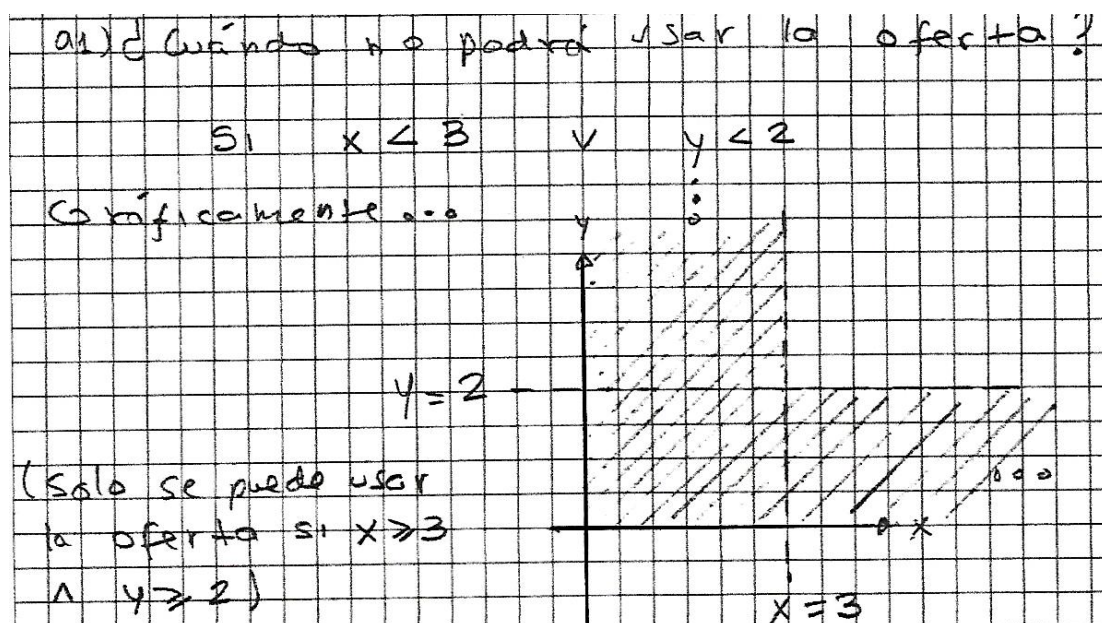 a1) ¿Cuándo no podrá usar la oferta?
Si x < 3 ∨ y < 2
Gráficamente...
y
y = 2
(solo se puede usar
la oferta si x ≥ 3
∧ y ≥ 2)
x
x = 3